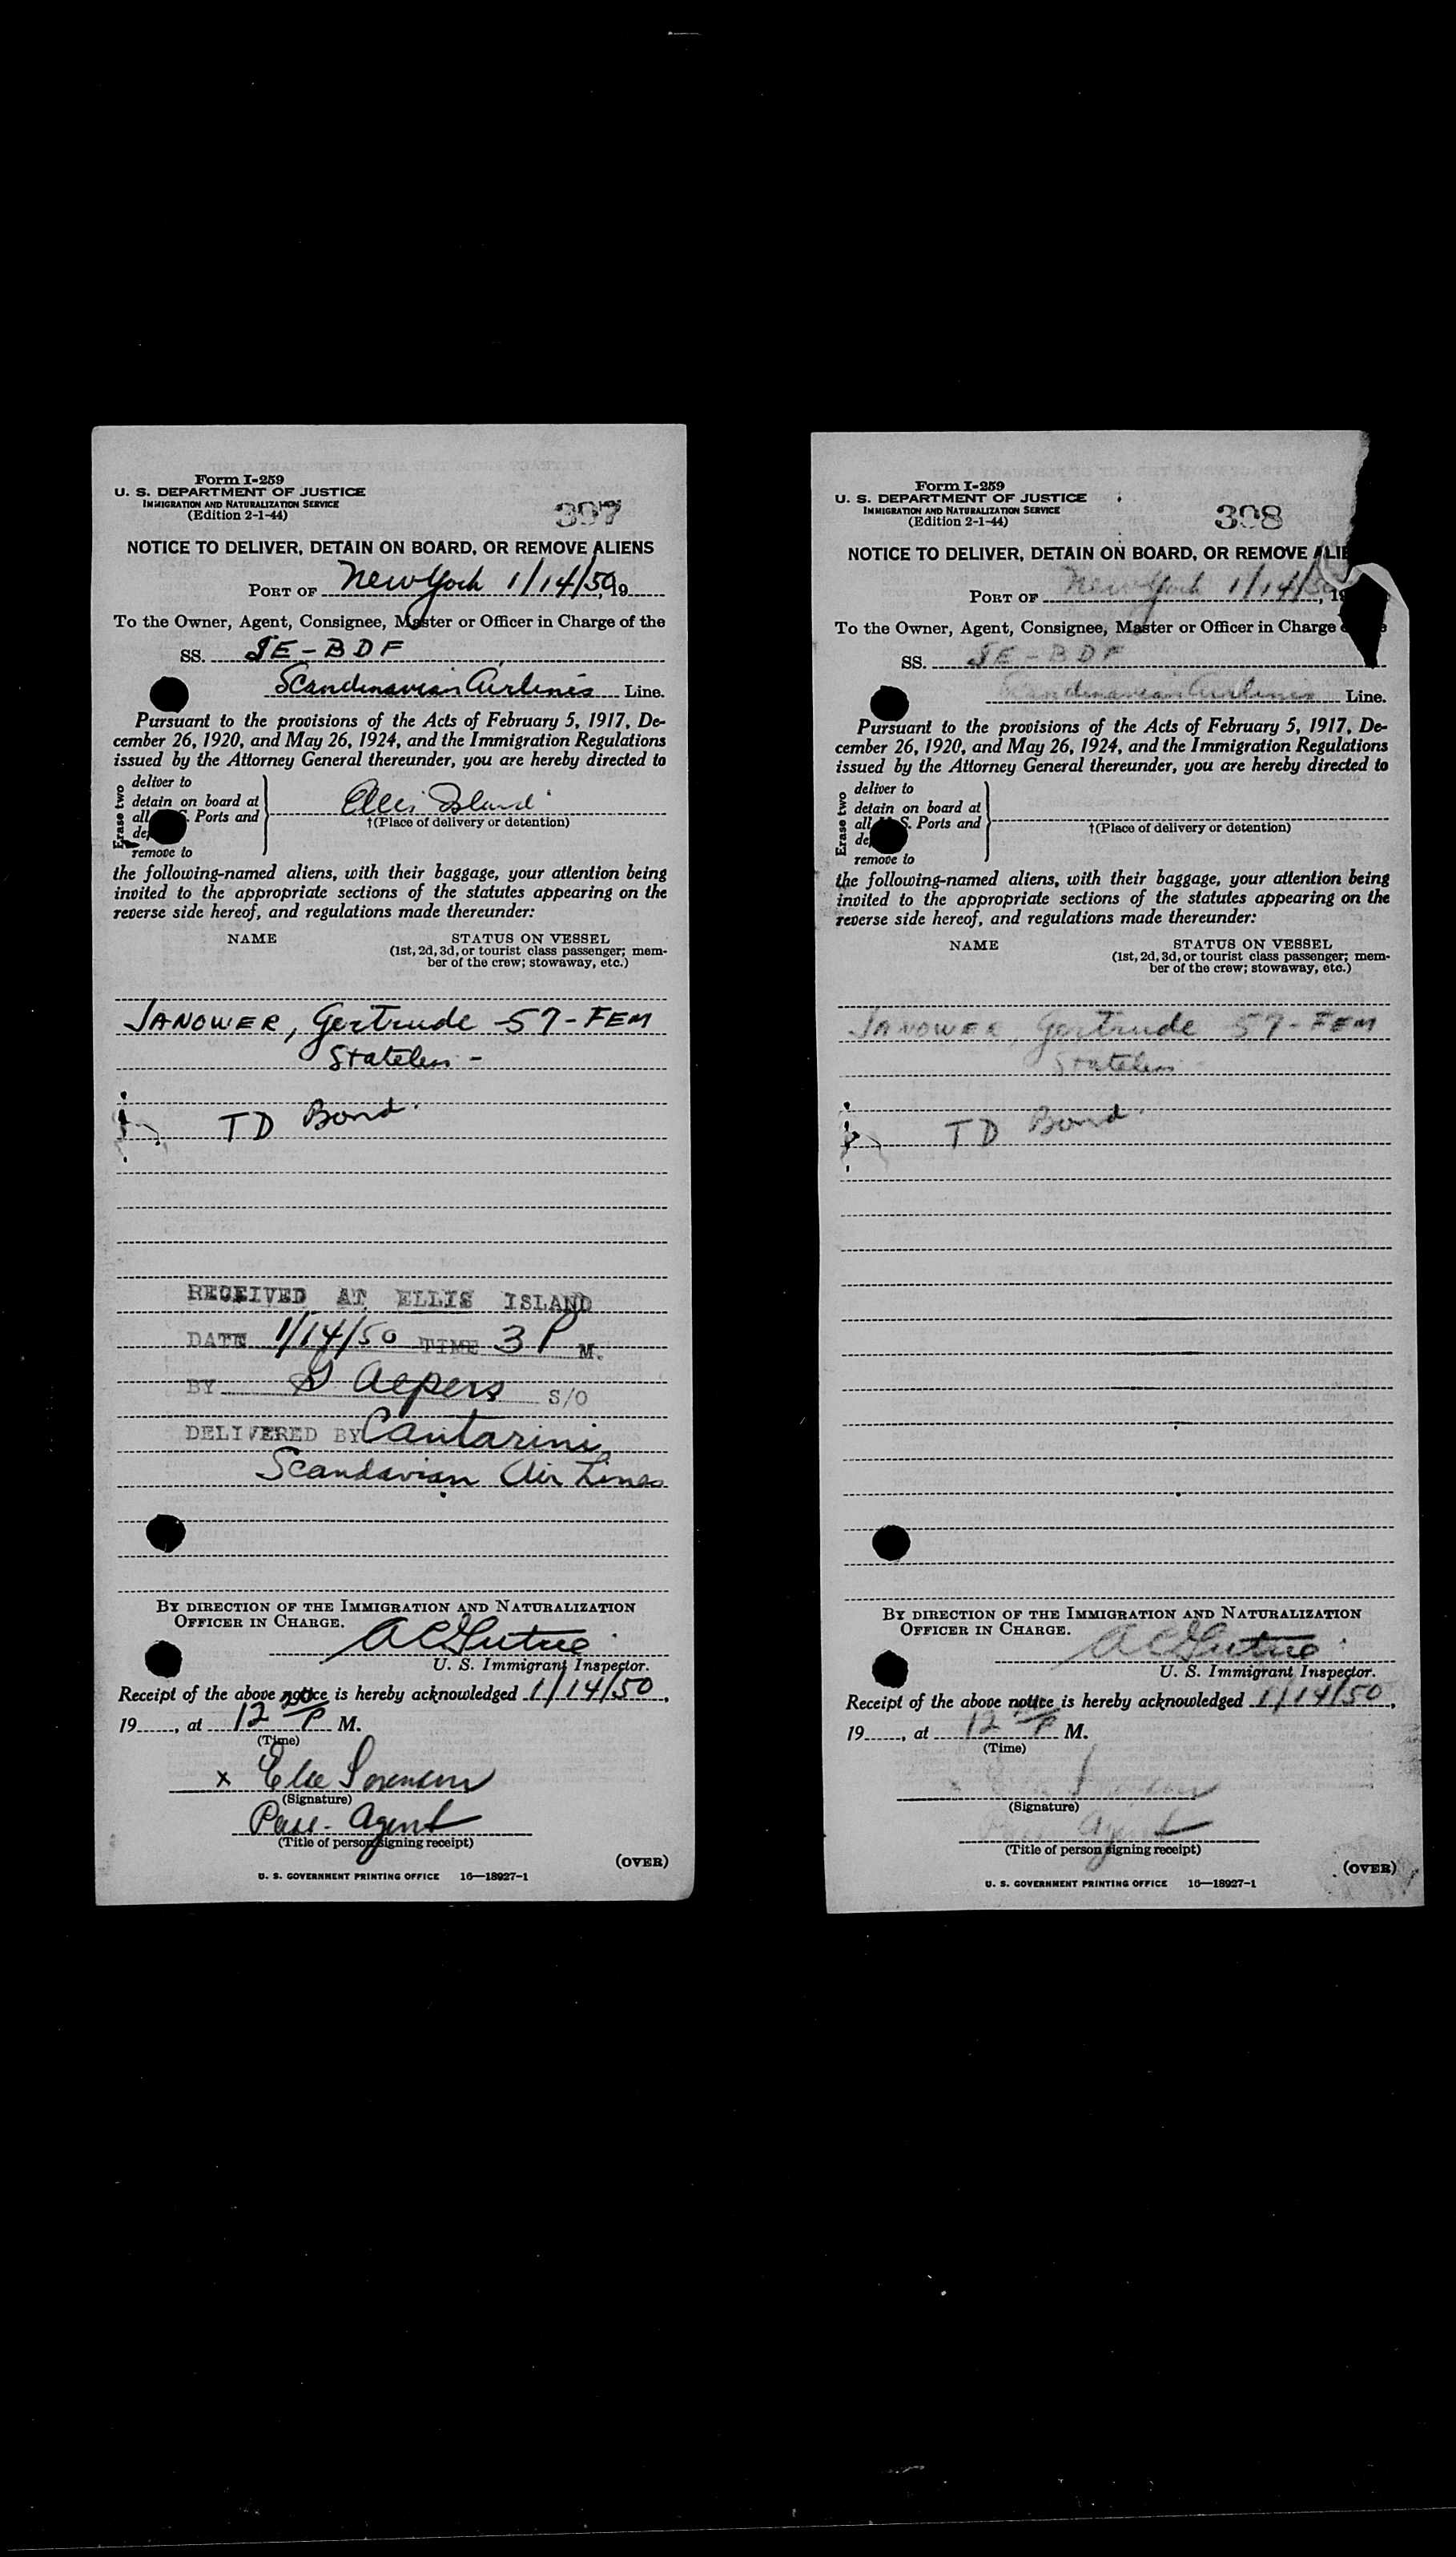 Form I-259
U. S. DEPARTMENT OF JUSTICE
IMMIGRATION AND NATURALIZATION SERVICE
(Edition 2-1-44)
397
NOTICE TO DELIVER, DETAIN ON BOARD, OR REMOVE ALIENS
PORT OF New York 1/14/50, 19
To the Owner, Agent, Consignee, Master or Officer in Charge of the
SS. SE-BDF
Scandinavian Airlines Line.
Pursuant to the provisions of the Acts of February 5, 1917, De-
cember 26, 1920, and May 26, 1924, and the Immigration Regulations
issued by the Attorney General thereunder, you are hereby directed to
Erase two
deliver to
detain on board at
all S. Ports and
remove to
Ellis Island
†(Place of delivery or detention)
the following-named aliens, with their baggage, your attention being
invited to the appropriate sections of the statutes appearing on the
reverse side hereof, and regulations made thereunder:
NAME
STATUS ON VESSEL
(1st, 2d, 3d, or tourist class passenger; mem-
ber of the crew; stowaway, etc.)
JANOWER, Gertrude 57-FEM
Stateless -
TD Bond.
RECEIVED AT ELLIS ISLAND
DATE 1/14/50 TIME 3 P M.
BY Alpers S/O
DELIVERED BY Cantarini,
Scandavian Air Lines
BY DIRECTION OF THE IMMIGRATION AND NATURALIZATION
OFFICER IN CHARGE.
U. S. Immigrant Inspector.
Receipt of the above notice is hereby acknowledged 1/14/50,
19, at 12 P M.
(Time)
x Else Sorensen
(Signature)
Pass. Agent
(Title of person signing receipt)
(OVER)
U. S. GOVERNMENT PRINTING OFFICE 16—18927-1
Form I-259
U. S. DEPARTMENT OF JUSTICE
IMMIGRATION AND NATURALIZATION SERVICE
(Edition 2-1-44)
398
NOTICE TO DELIVER, DETAIN ON BOARD, OR REMOVE ALIE
PORT OF New York 1/14/50, 19
To the Owner, Agent, Consignee, Master or Officer in Charge
SS. SE-BDF
Scandinavian Airlines Line.
Pursuant to the provisions of the Acts of February 5, 1917, De-
cember 26, 1920, and May 26, 1924, and the Immigration Regulations
issued by the Attorney General thereunder, you are hereby directed to
Erase two
deliver to
detain on board at
all S. Ports and
remove to
†(Place of delivery or detention)
the following-named aliens, with their baggage, your attention being
invited to the appropriate sections of the statutes appearing on the
reverse side hereof, and regulations made thereunder:
NAME
STATUS ON VESSEL
(1st, 2d, 3d, or tourist class passenger; mem-
ber of the crew; stowaway, etc.)
JANOWER, Gertrude 57-FEM
Stateless -
TD Bond.
BY DIRECTION OF THE IMMIGRATION AND NATURALIZATION
OFFICER IN CHARGE.
U. S. Immigrant Inspector.
Receipt of the above notice is hereby acknowledged 1/14/50,
19, at 12 P M.
(Time)
(Signature)
Pass. Agent
(Title of person signing receipt)
(OVER)
U. S. GOVERNMENT PRINTING OFFICE 16—18927-1